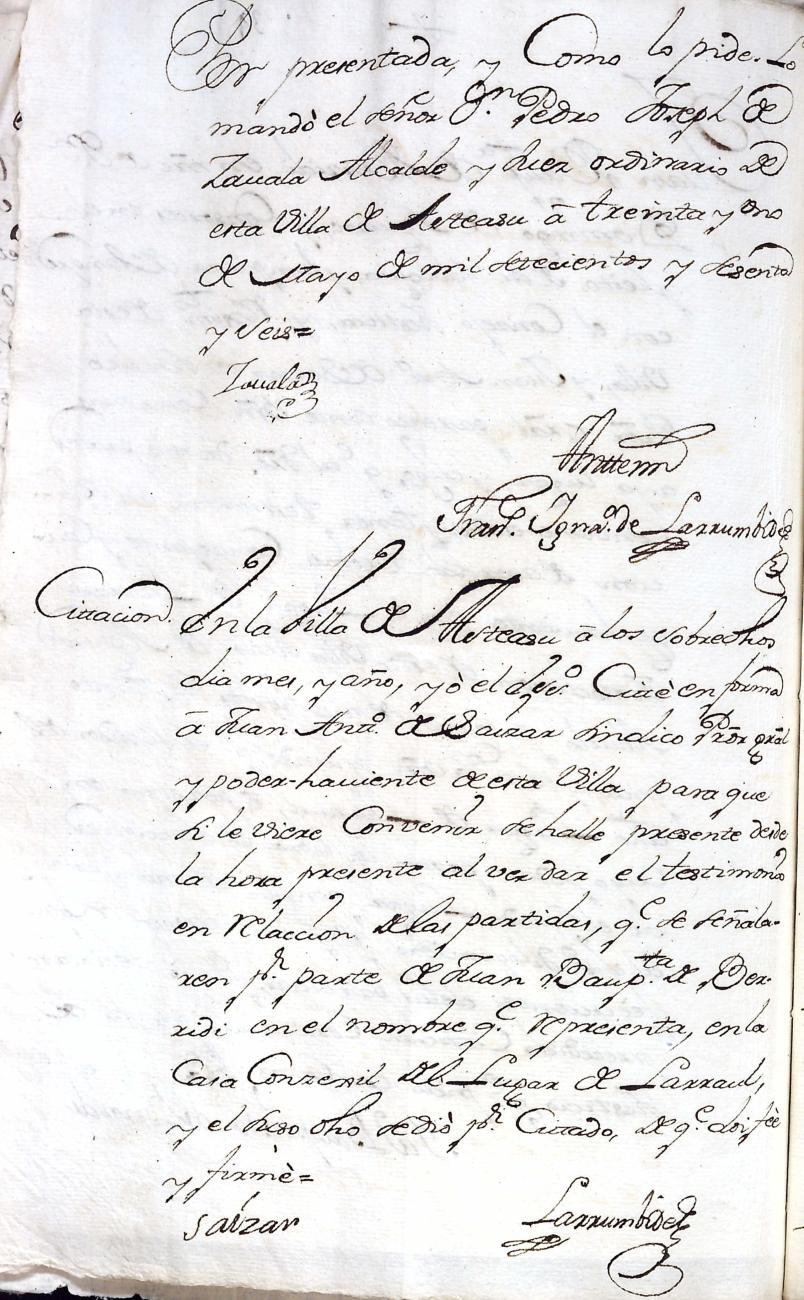 Por presentada, y Como lo pide. Lo
mandò el señor Dn. Pedro Joseph de
Zauala Alcalde y Juez ordinario de
esta Villa de Asteasu â treinta y uno
de Mayo de mil setecientos y sesenta
y seis=
Zauala
Anttemi
Franco. Ignao. de Larrumbide
Cittacion. En la Villa de Asteasu â los sobredhos
dia mes, y año, yò el dho esso. Cittè en forma
â Juan Anto. de Saizar sindico Pror gral
y poder-hauiente de esta Villa para que
si le viere Convenir se halle presente desde
la hora presente al ver dar el testimonio
en relaccion de las partidas, qe. se señala-
ren pr. parte de Juan Baupta. de Ber-
ridi en el nombre qe. representa, en la
Casa Conzegil del Lugar de Larraul,
y el suso dho se diò pr. Cittado, de qe. doi feè
y firmè=
Saizar Larrumbide